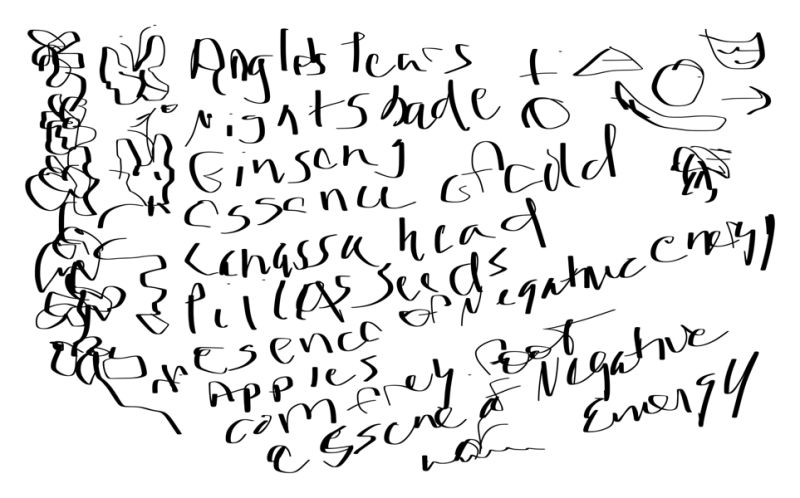 Angles tears
Nightshade
Ginseng
essence of cold
head
seeds
esence of Negative energy
Apples
comfrey foot
essene of Negative
Energy